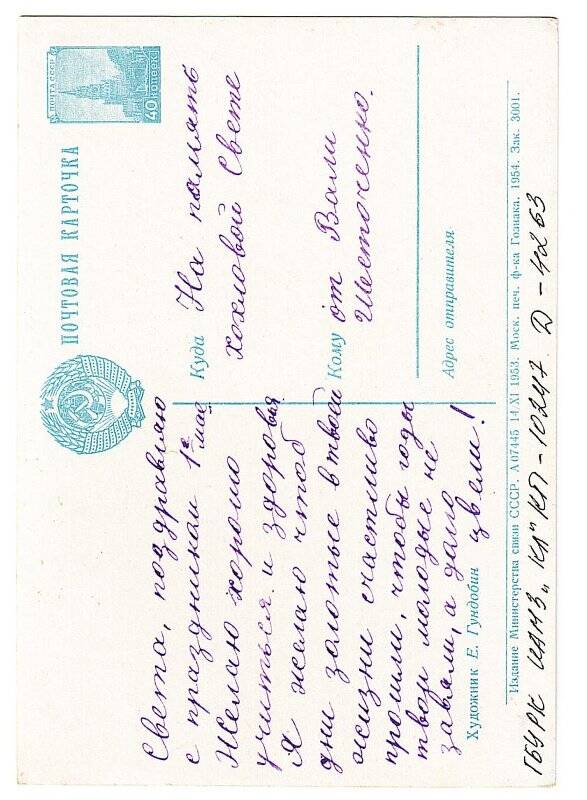 ПОЧТА СССР
40 КОПЕЕК
ПОЧТОВАЯ КАРТОЧКА
Света, поздравляю
с праздником 1е май
Желаю хорошо
учиться и здоровья.
Я желаю чтоб
дни золотые в твоей
жизни счастливо
прошли, чтобы годы
твои молодые не
завяли, а дало
цвели!
Художник Е. Гундобин
Куда На память
Хохловой Свете
Кому от Вали
Шесточенко.
Адрес отправителя
Издание Министерства связи СССР. А 07445 14/XI 1953. Моск. печ. ф-ка Гознака. 1954. Зак. 3001.
ГБУ РК ЦМНЗ „КП" КП-10247 Д-4263